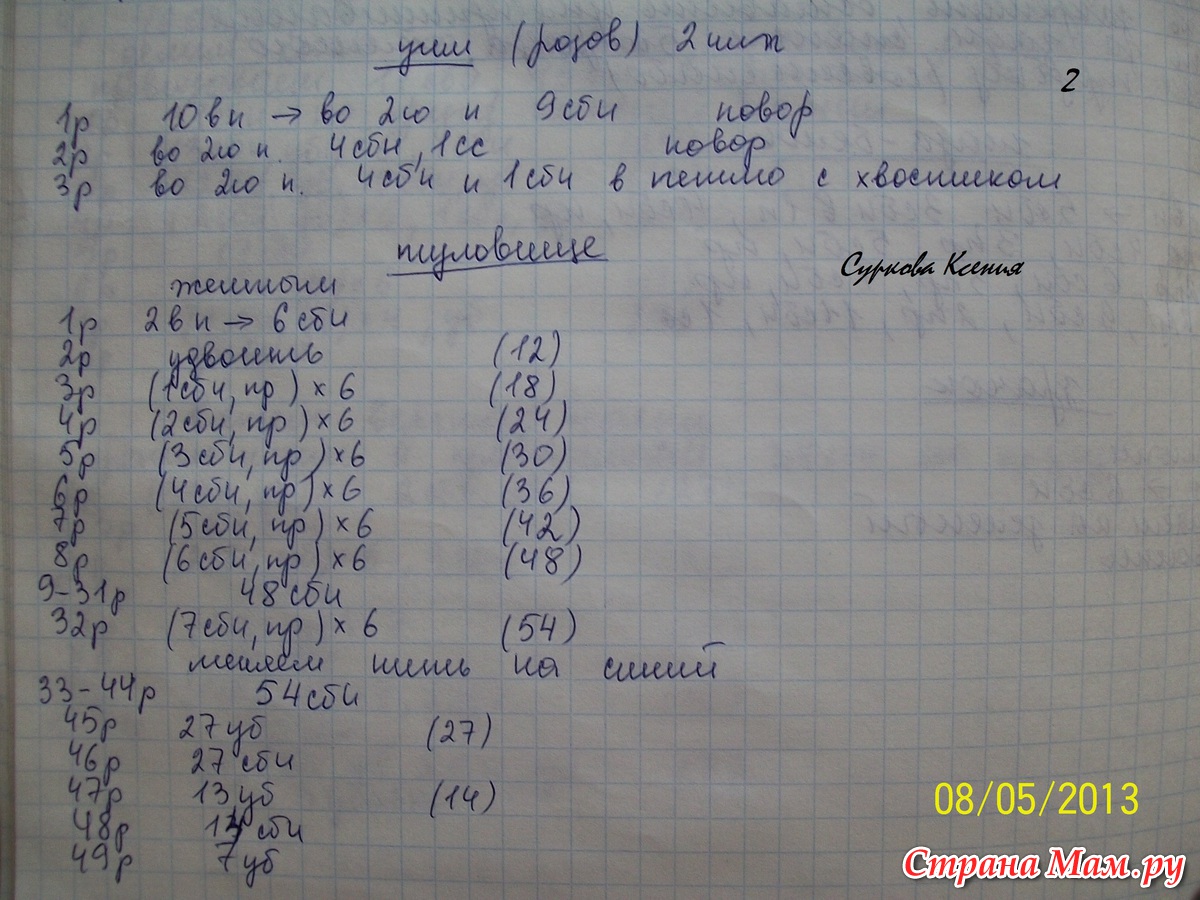 уши (розов) 2 шт
2
1р 10вп → во 2ю п 9сбн повор
2р во 2ю п. 4сбн, 1сс повор
3р во 2ю п. 4сбн и 1сбн в петлю с хвостиком
туловище
Суркова Ксения
желтым
1р 2вп → 6сбн
2р удвоить (12)
3р (1сбн, пр) х 6 (18)
4р (2сбн, пр) х 6 (24)
5р (3сбн, пр) х 6 (30)
6р (4сбн, пр) х 6 (36)
7р (5сбн, пр) х 6 (42)
8р (6сбн, пр) х 6 (48)
9-31р 48сбн
32р (7сбн, пр) х 6 (54)
меняем нить на синий
33-44р 54сбн
45р 27уб (27)
46р 27сбн
47р 13уб (14)
48р 14сбн
49р 7уб
08/05/2013
Страна Мам.ру